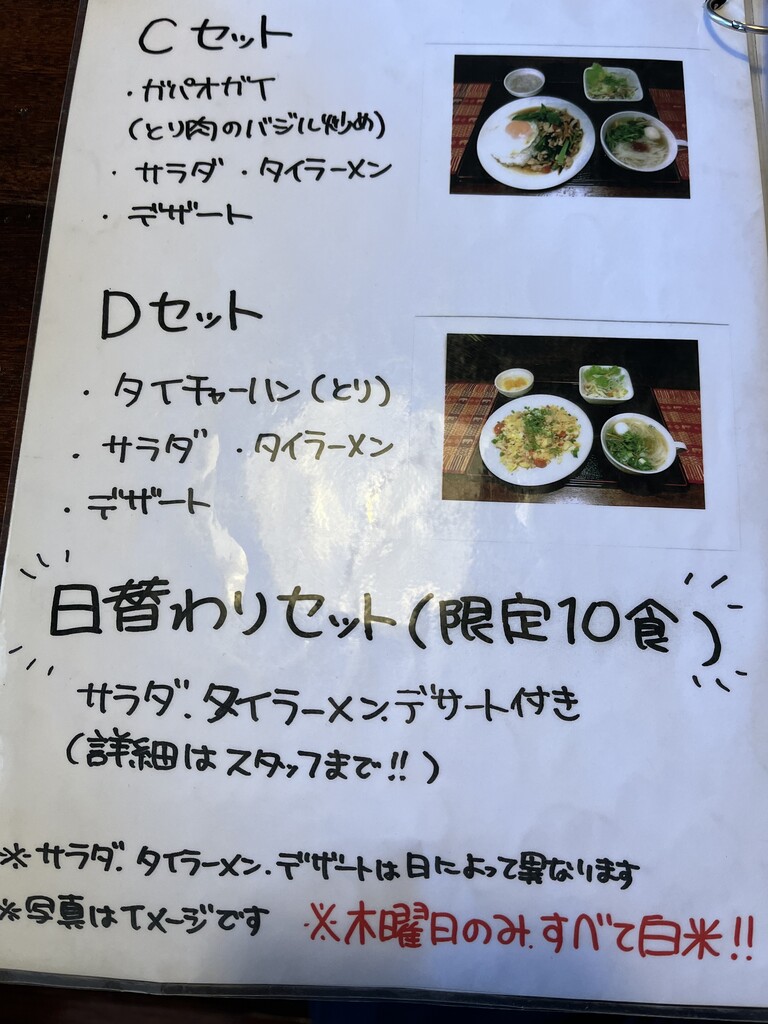 Cセット
・ガパオガイ
(とり肉のバジル炒め)
・サラダ ・タイラーメン
・デザート
Dセット
・タイチャーハン(とり)
・サラダ ・タイラーメン
・デザート
日替わりセット(限定10食)
サラダ、タイラーメン、デサート付き
(詳細はスタッフまで!!)
※サラダ、タイラーメン、デザートは日によって異なります
※写真はイメージです ※木曜日のみ、すべて白米!!